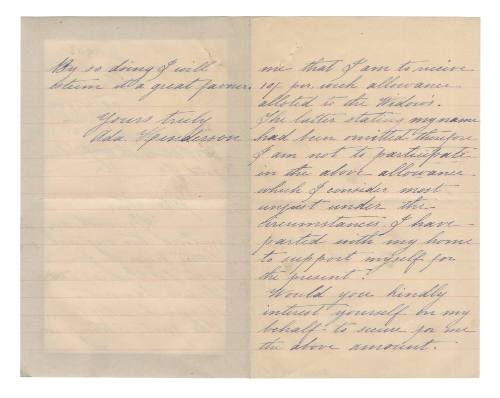 me that I am to recive
14 per inch allowance
alloted to the Widows.
The latter stating my name
had been omitted therefore
I am not to participate
in the above allowance
which I consider most
unjust under the
circumstances. I have
parted with my home
to support myself for
the present.
Would you kindly
interest yourself on my
behalf to secure for me
the above amount.
By so doing I will
esteem it a great favour.
Yours truly
Ada Henderson